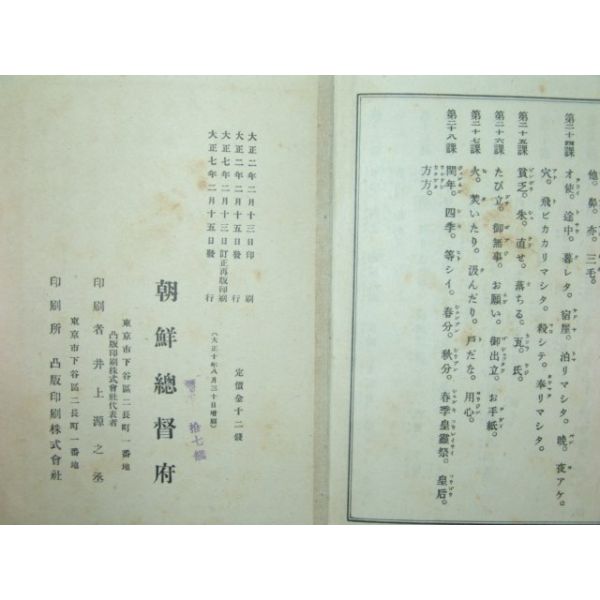 他。鼻。亦。三毛。
第二十四課 オ使。途中。暮レタ。宿屋。泊リマシタ。晩。夜アケ。
穴。飛ビカカリマシタ。殺シテ。奉リマシタ。
第二十五課 貧乏。朱。直せ。落ちる。瓦。氏。
第二十六課 たび立。御無事。お願い。御出立。お手紙。
第二十七課 火。炭いたり。汲んだり。戸だな。用心。
第二十八課 閏年。四季。等シイ。春分。秋分。春季皇靈祭。皇后。
方方。
大正二年二月十三日印刷
大正二年二月十五日發行
大正七年二月十三日訂正再版印刷
大正七年二月十五日發行
(大正十年八月三十日增刷)
定價金十二錢
拾七錢
朝鮮總督府
東京市下谷區二長町一番地
凸版印刷株式會社代表者
印刷者 井上源之丞
東京市下谷區二長町一番地
印刷所 凸版印刷株式會社